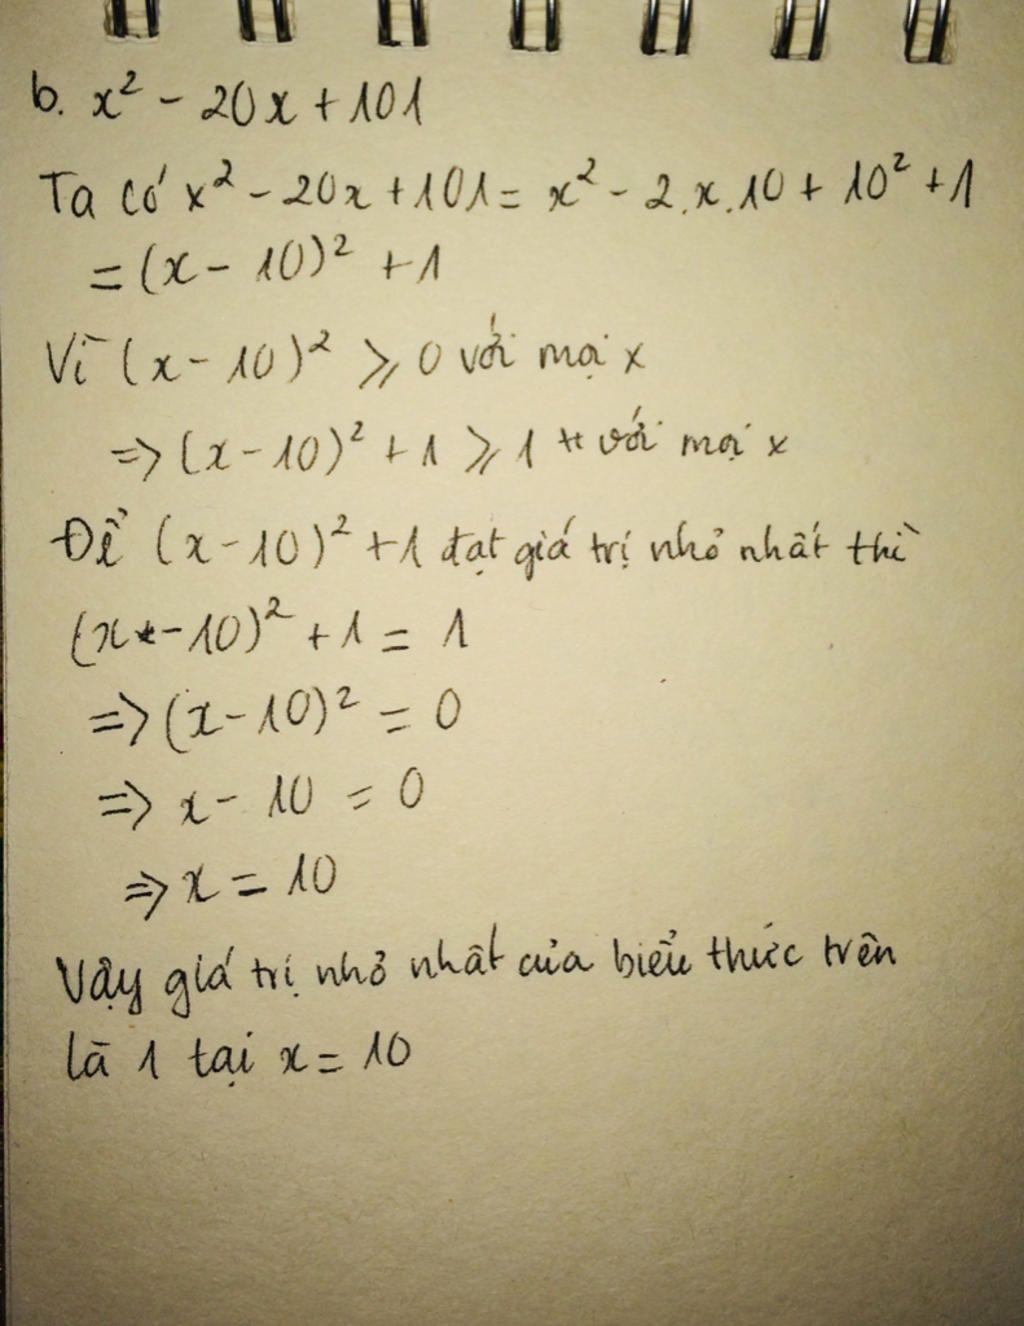 b. x² - 20x + 101
Ta có x² - 20x + 101 = x² - 2.x.10 + 10² + 1
= (x - 10)² + 1
Vì (x - 10)² ⩾ 0 với mọi x
=> (x - 10)² + 1 ⩾ 1 với mọi x
Để (x - 10)² + 1 đạt giá trị nhỏ nhất thì
(x - 10)² + 1 = 1
=> (x - 10)² = 0
=> x - 10 = 0
=> x = 10
Vậy giá trị nhỏ nhất của biểu thức trên
là 1 tại x = 10